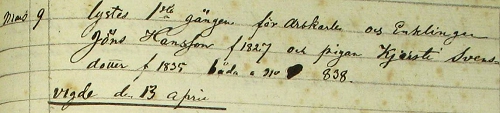 Mars 9 lystes 1sta gången för Arbkarlen och Enklingen
Jöns Hansson f 1827 och pigan Kjersti Svens-
dotter f 1835 båda a no 838.
vigde d. 13 april